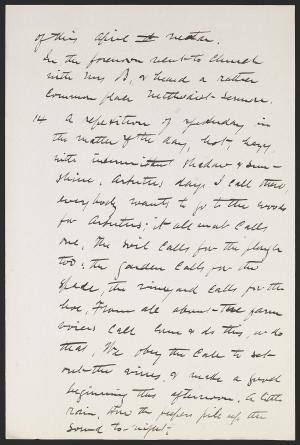 of this April weather.
In the forenoon went to Church
with Mrs B, & heard a rather
common place Methodist Sermon.
14 A repetition of yesterday in
the matter of the day, hot, hazy,
with intermittent shadow & sun-
shine. Arbutus days I call them,
everybody wants to go to the woods
for Arbutus; it almost calls
one, The soil calls for the plough
too; the garden calls, for the
spade, the vineyard calls for the
hoe. From all about the farm
voices call come & do this, & do
that, We obey the call to set
out the vines, & make a good
beginning this afternoon. A little
rain, how the peepers pile up the
sound to-night.